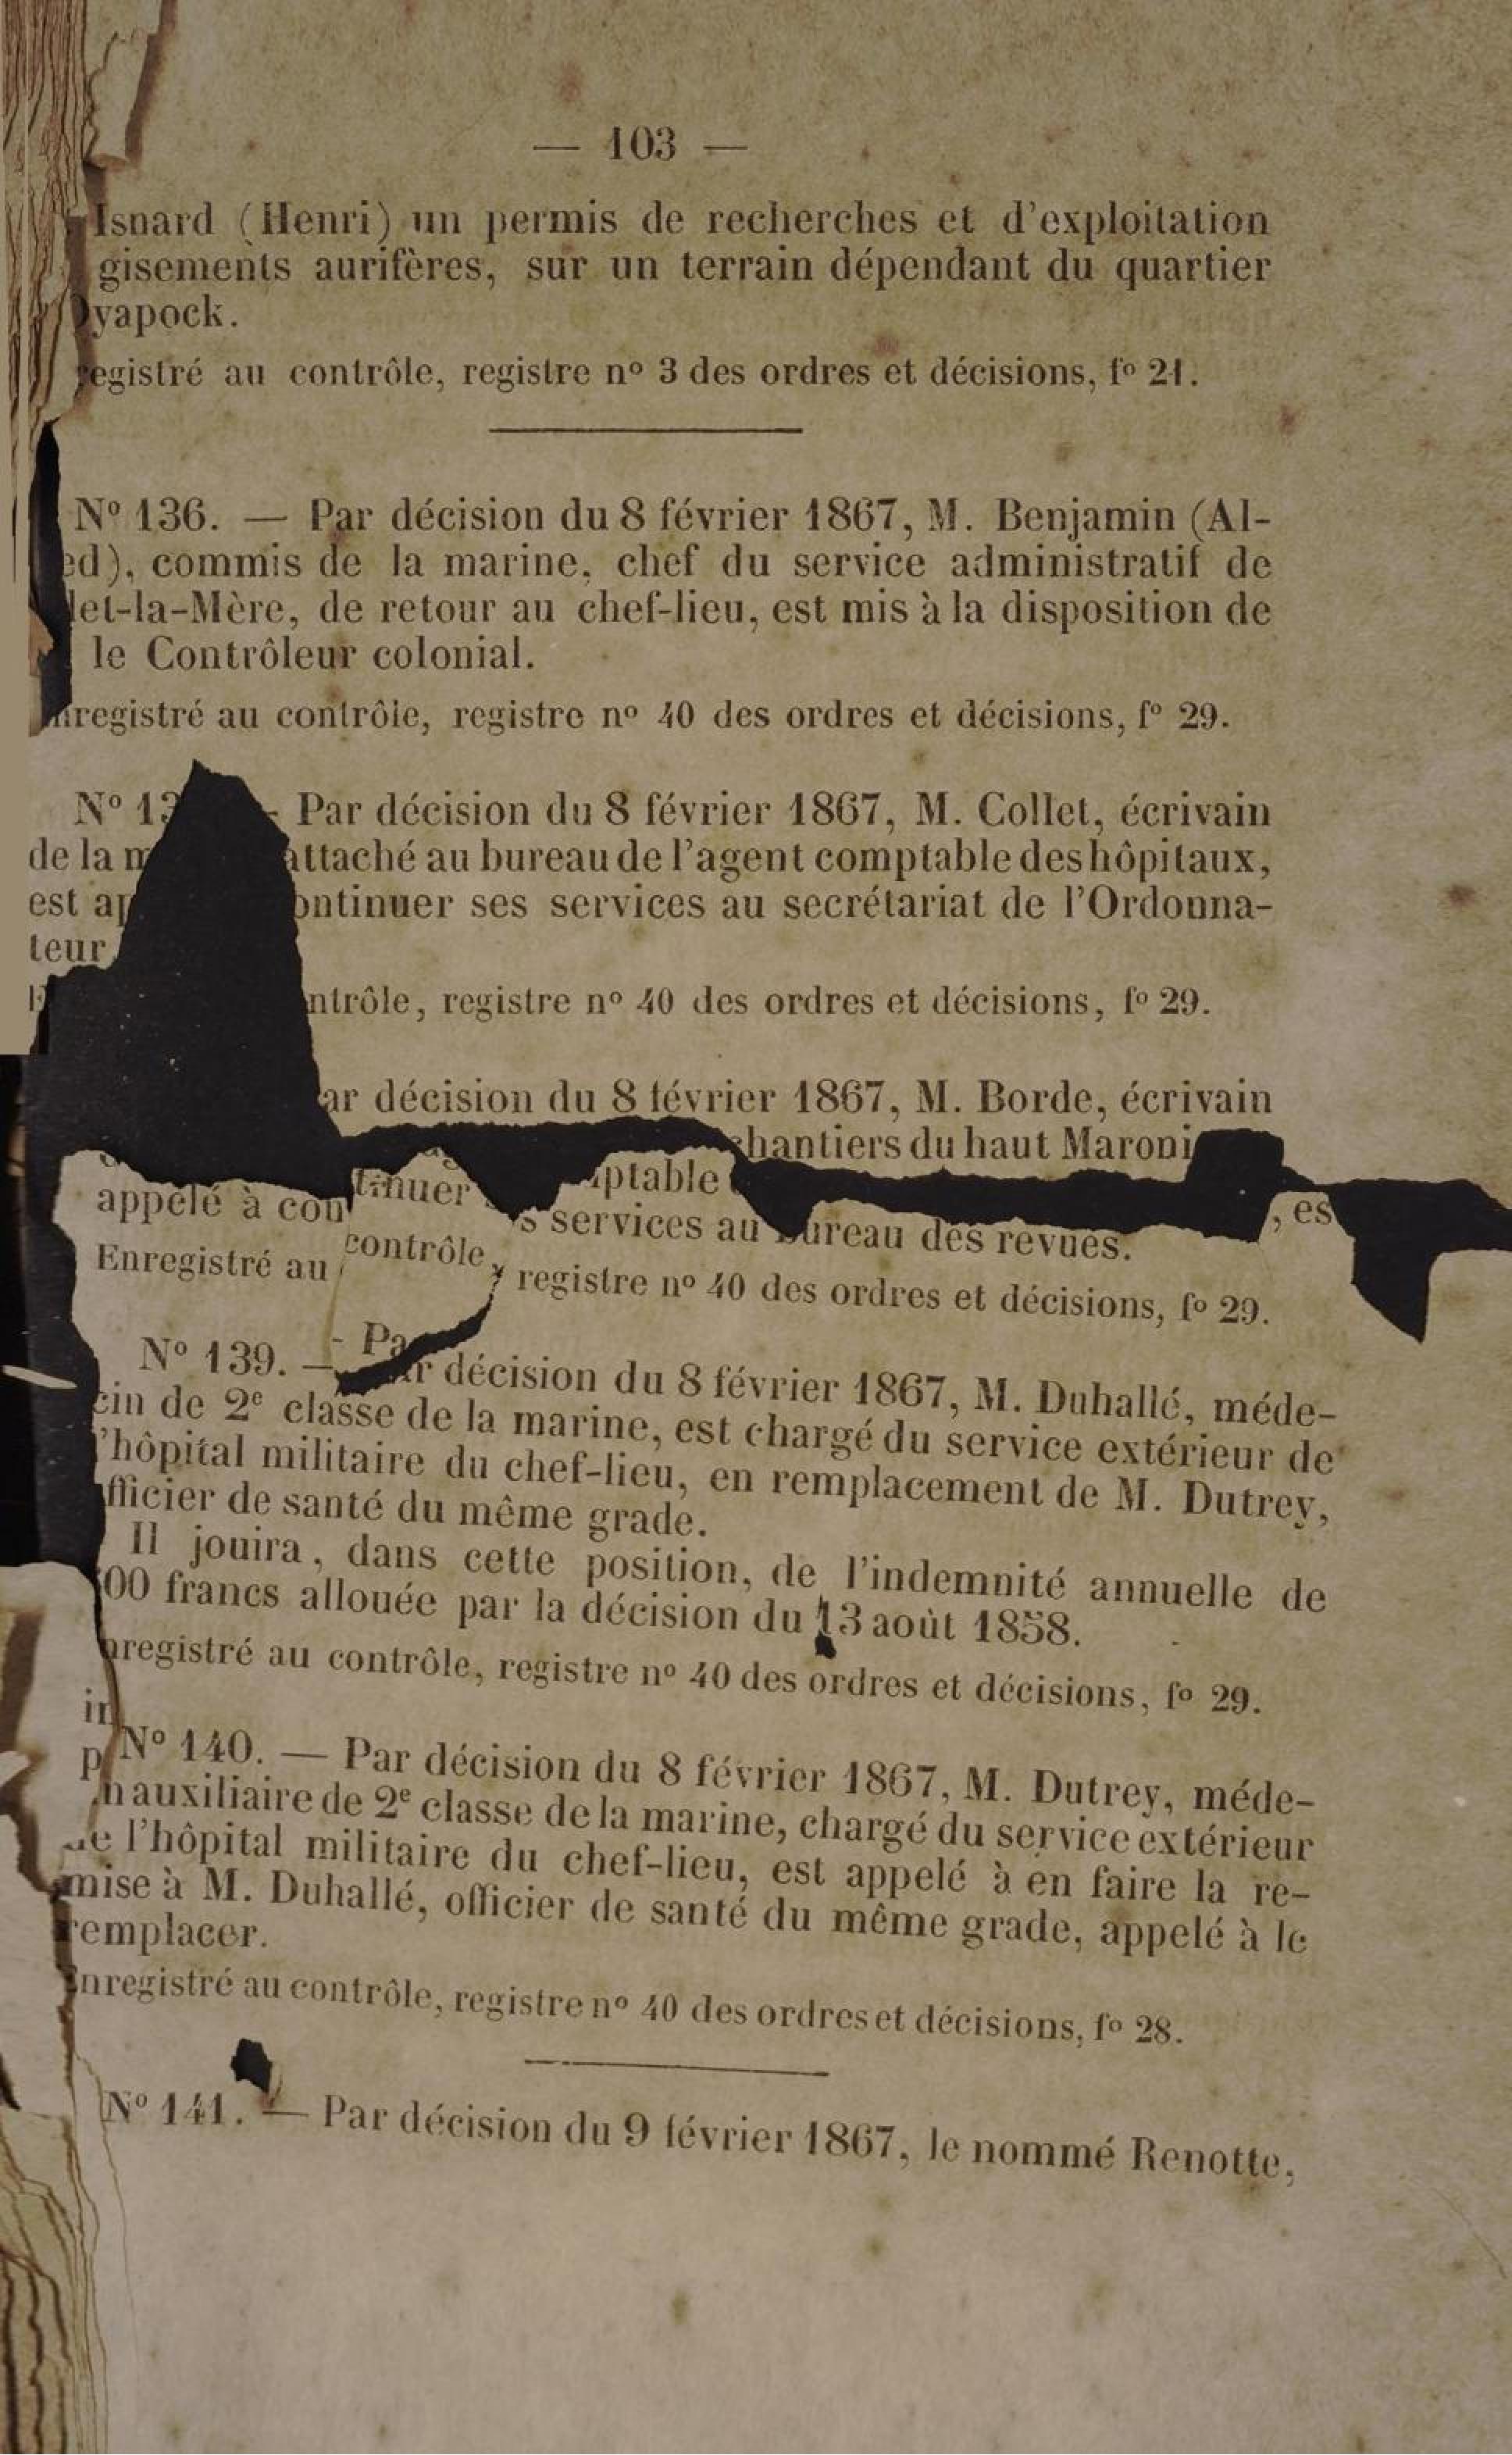 — 103 —
Isnard (Henri) un permis de recherches et d'exploitation
gisements aurifères, sur un terrain dépendant du quartier
Oyapock.
registré au contrôle, registre n° 3 des ordres et décisions, f° 21.
N° 136. — Par décision du 8 février 1867, M. Benjamin (Al-
ed), commis de la marine, chef du service administratif de
let-la-Mère, de retour au chef-lieu, est mis à la disposition de
le Contrôleur colonial.
nregistré au contrôle, registre n° 40 des ordres et décisions, f° 29.
N° 13 - Par décision du 8 février 1867, M. Collet, écrivain
de la m attaché au bureau de l'agent comptable des hôpitaux,
est ap ontinuer ses services au secrétariat de l'Ordonna-
teur
ntrôle, registre n° 40 des ordres et décisions, f° 29.
ar décision du 8 février 1867, M. Borde, écrivain
chantiers du haut Maroni, es
appelé à continuer s services au bureau des revues.
Enregistré au contrôle, registre n° 40 des ordres et décisions, f° 29.
N° 139. — Par décision du 8 février 1867, M. Duhallé, méde-
cin de 2e classe de la marine, est chargé du service extérieur de
l'hôpital militaire du chef-lieu, en remplacement de M. Dutrey,
fficier de santé du même grade.
Il jouira, dans cette position, de l'indemnité annuelle de
00 francs allouée par la décision du 13 août 1858.
nregistré au contrôle, registre n° 40 des ordres et décisions, f° 29.
N° 140. — Par décision du 8 février 1867, M. Dutrey, méde-
n auxiliaire de 2e classe de la marine, chargé du service extérieur
de l'hôpital militaire du chef-lieu, est appelé à en faire la re-
mise à M. Duhallé, officier de santé du même grade, appelé à le
remplacer.
Enregistré au contrôle, registre n° 40 des ordres et décisions, f° 28.
N° 141. — Par décision du 9 février 1867, le nommé Renotte,